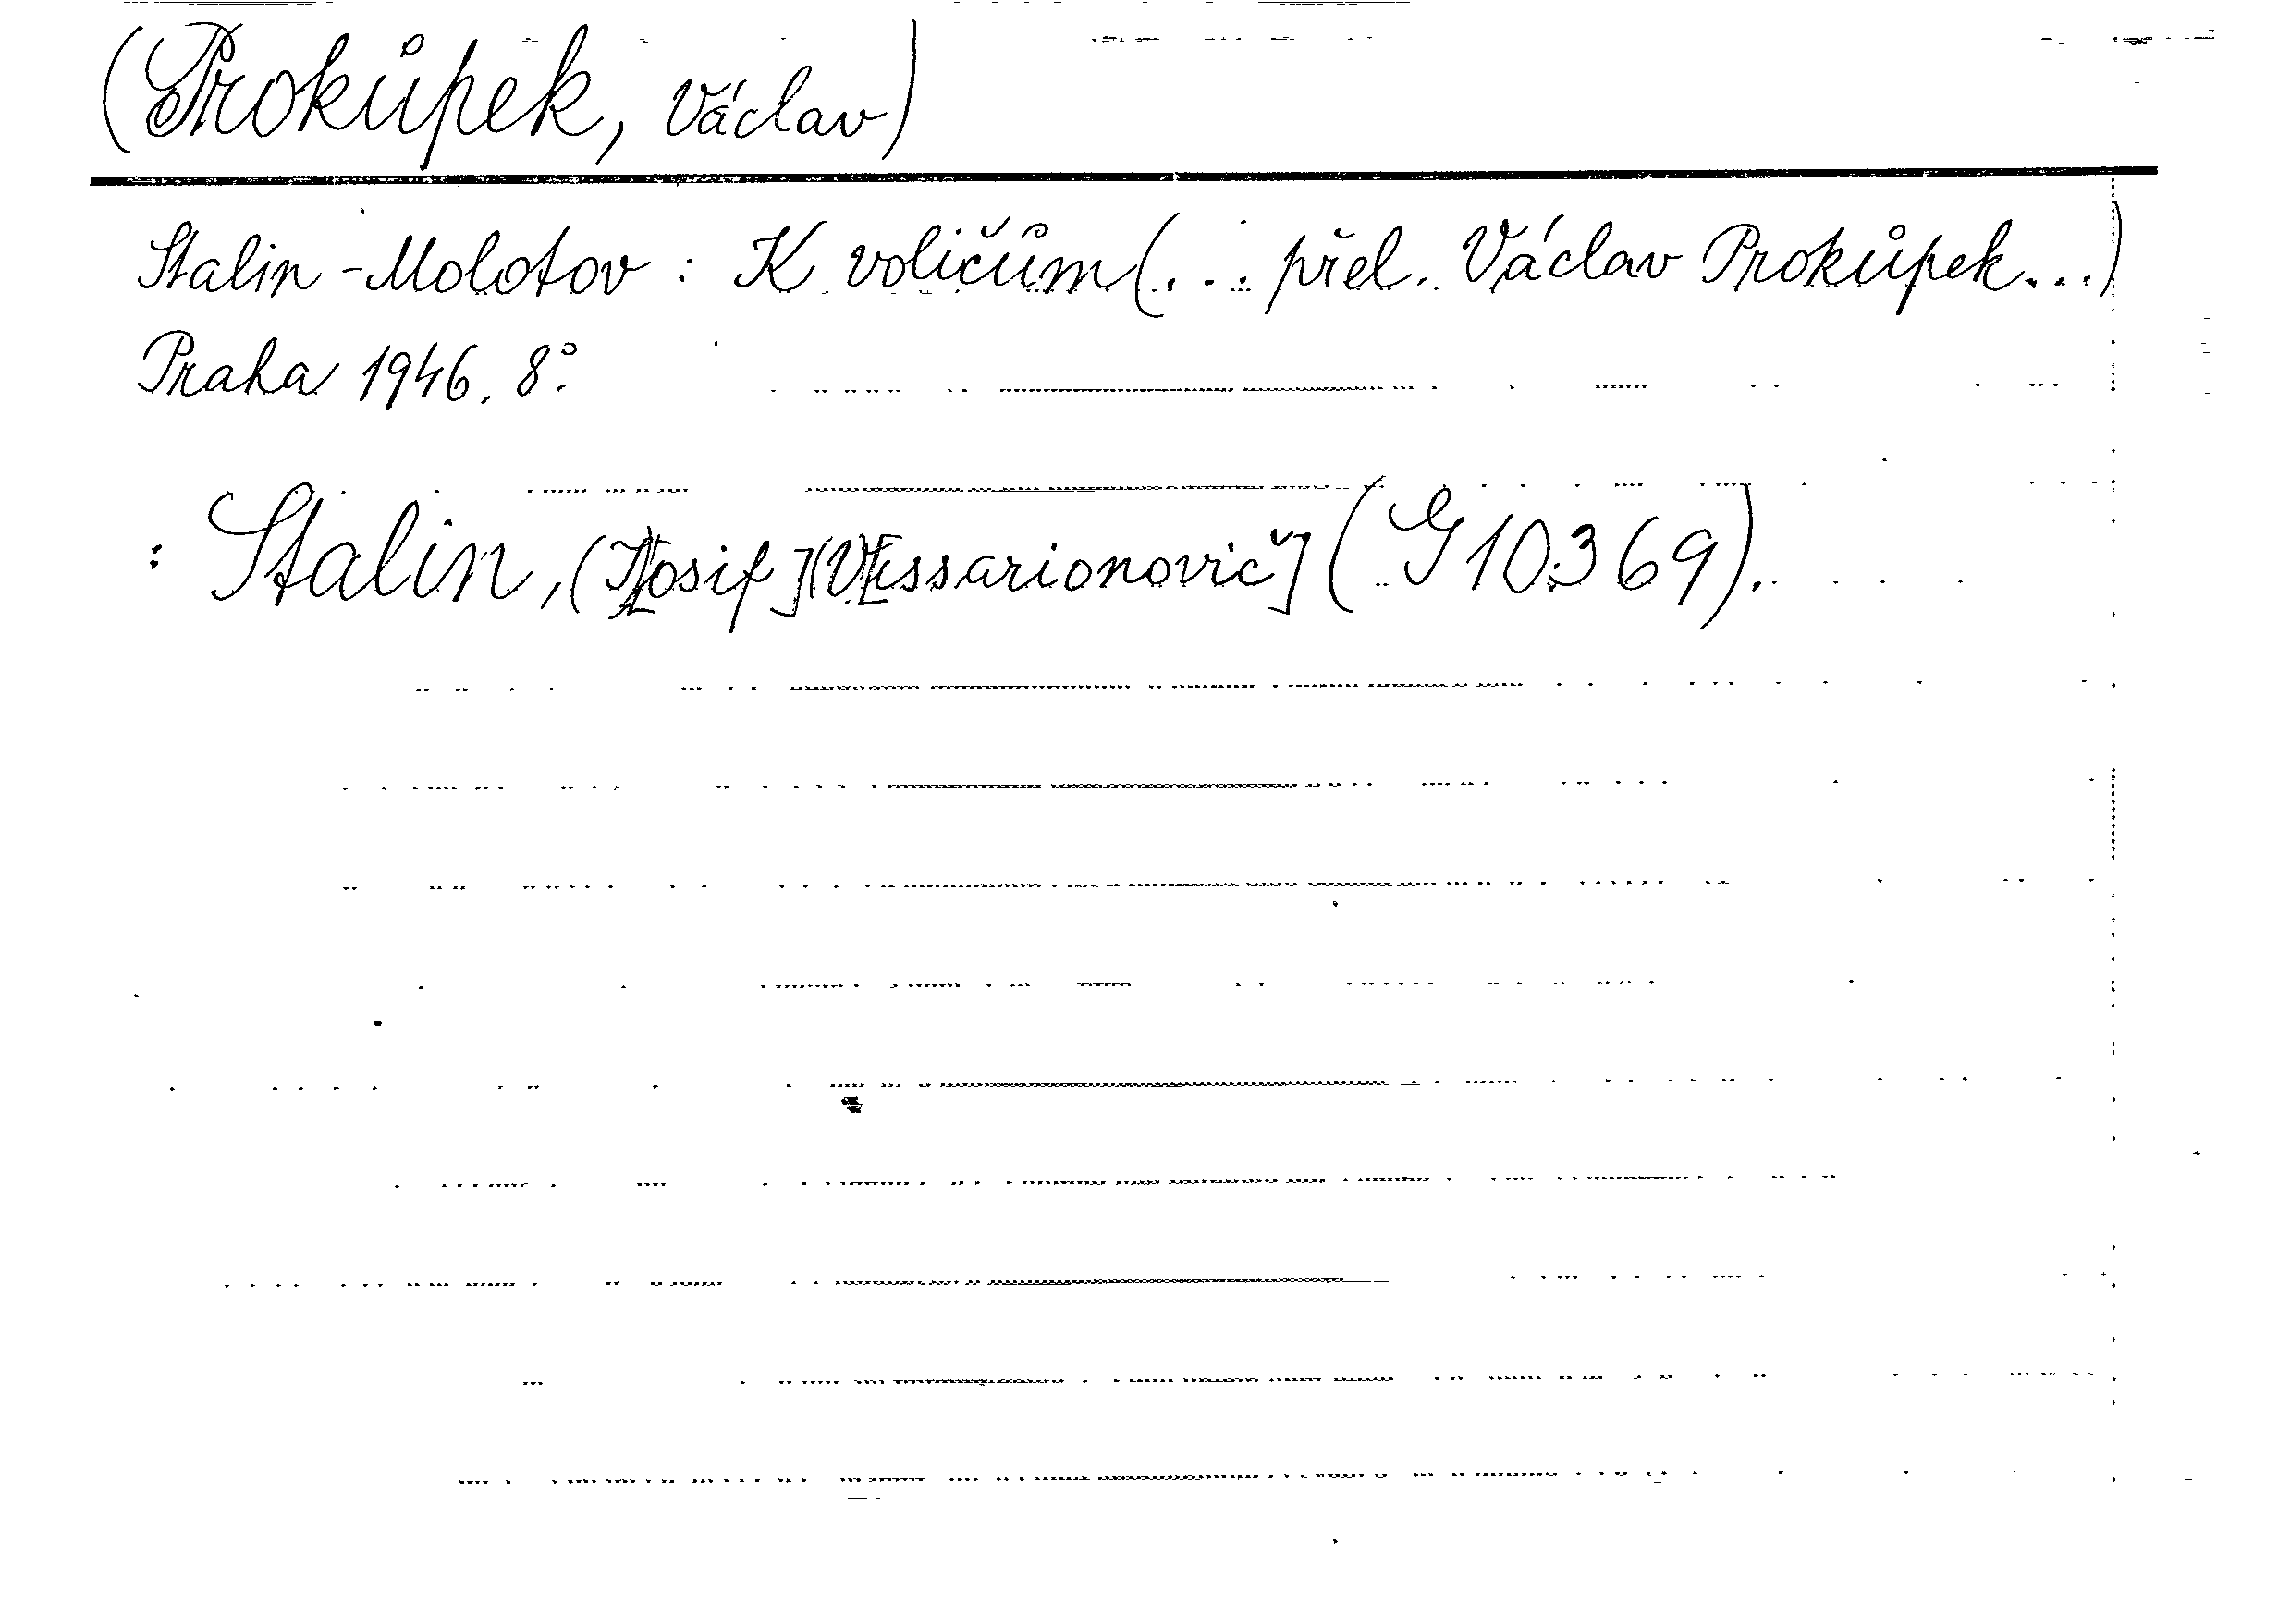 (Prokůpek, Václav)
Stalin-Molotov: K voličům (... přel. Václav Prokůpek...)
Praha 1946. 8°.
: Stalin, (J[osif] (V[issarionovič] (G 10369).